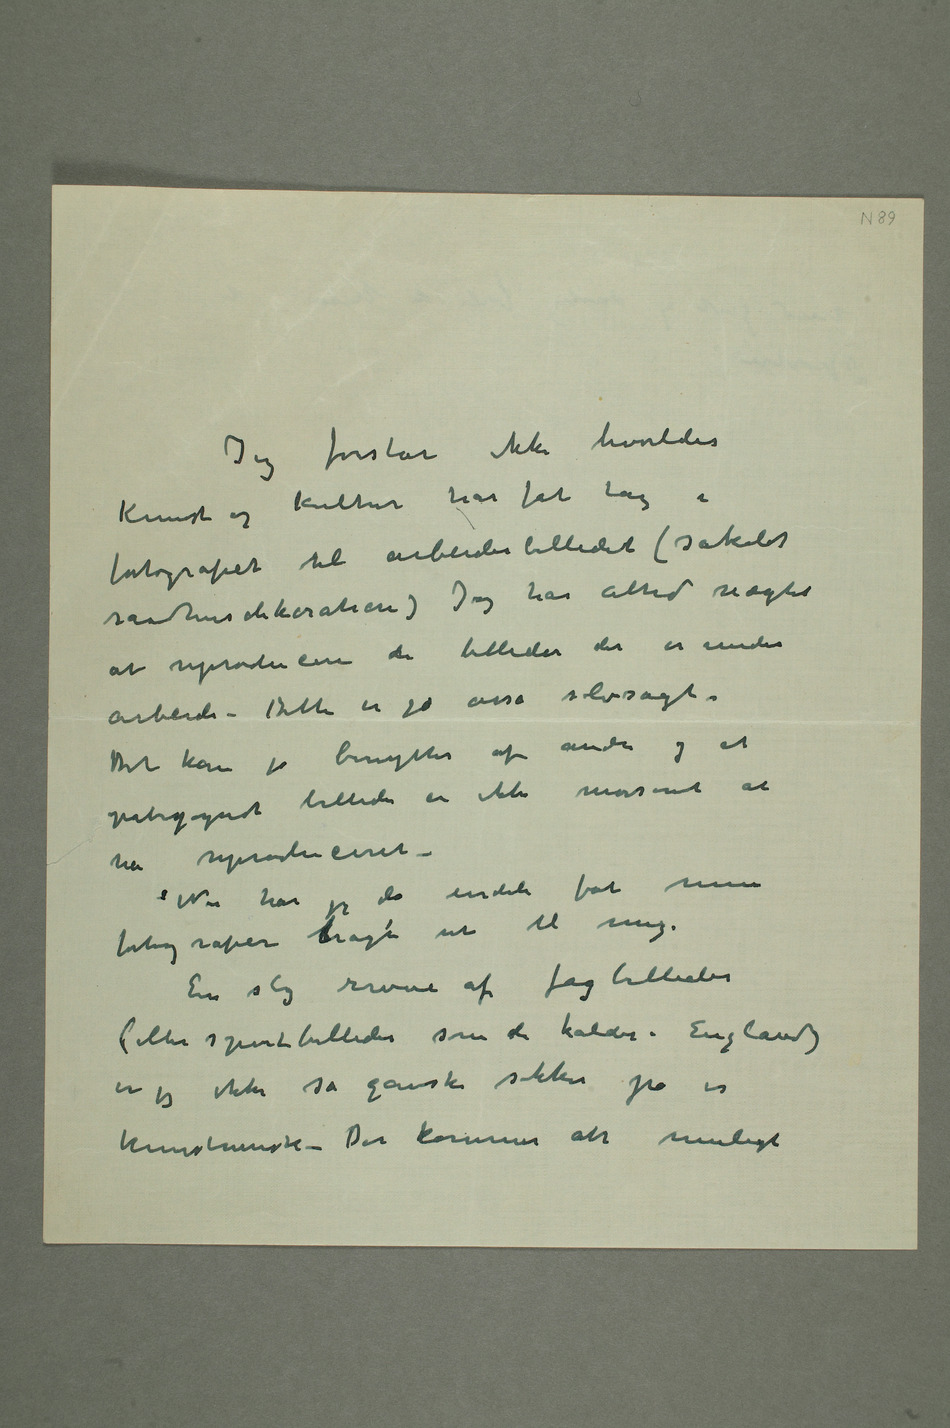 N 89
Jeg forstår ikke hvorledes
Kunst og Kultur har fåt tag i
fotografiet til arbeiderbilledet (såkaldt
raadhusdekoration) Jeg har altid nægtet
at reproducere de billeder der er under
arbeide – Dette er jo også selvsagt –
Det kan jo benyttes af andre og et
påbegyndt billede er ikke morsomt at
ha reproduceret –
Nu har jeg da endeli fåt mine
fotografier bragt ut til mig.
En slig revue af fagbilleder
(eller sportbilleder som de kaldes i England)
er jeg ikke så ganske sikker på er
kunstnerisk – Der kommer alt muligt